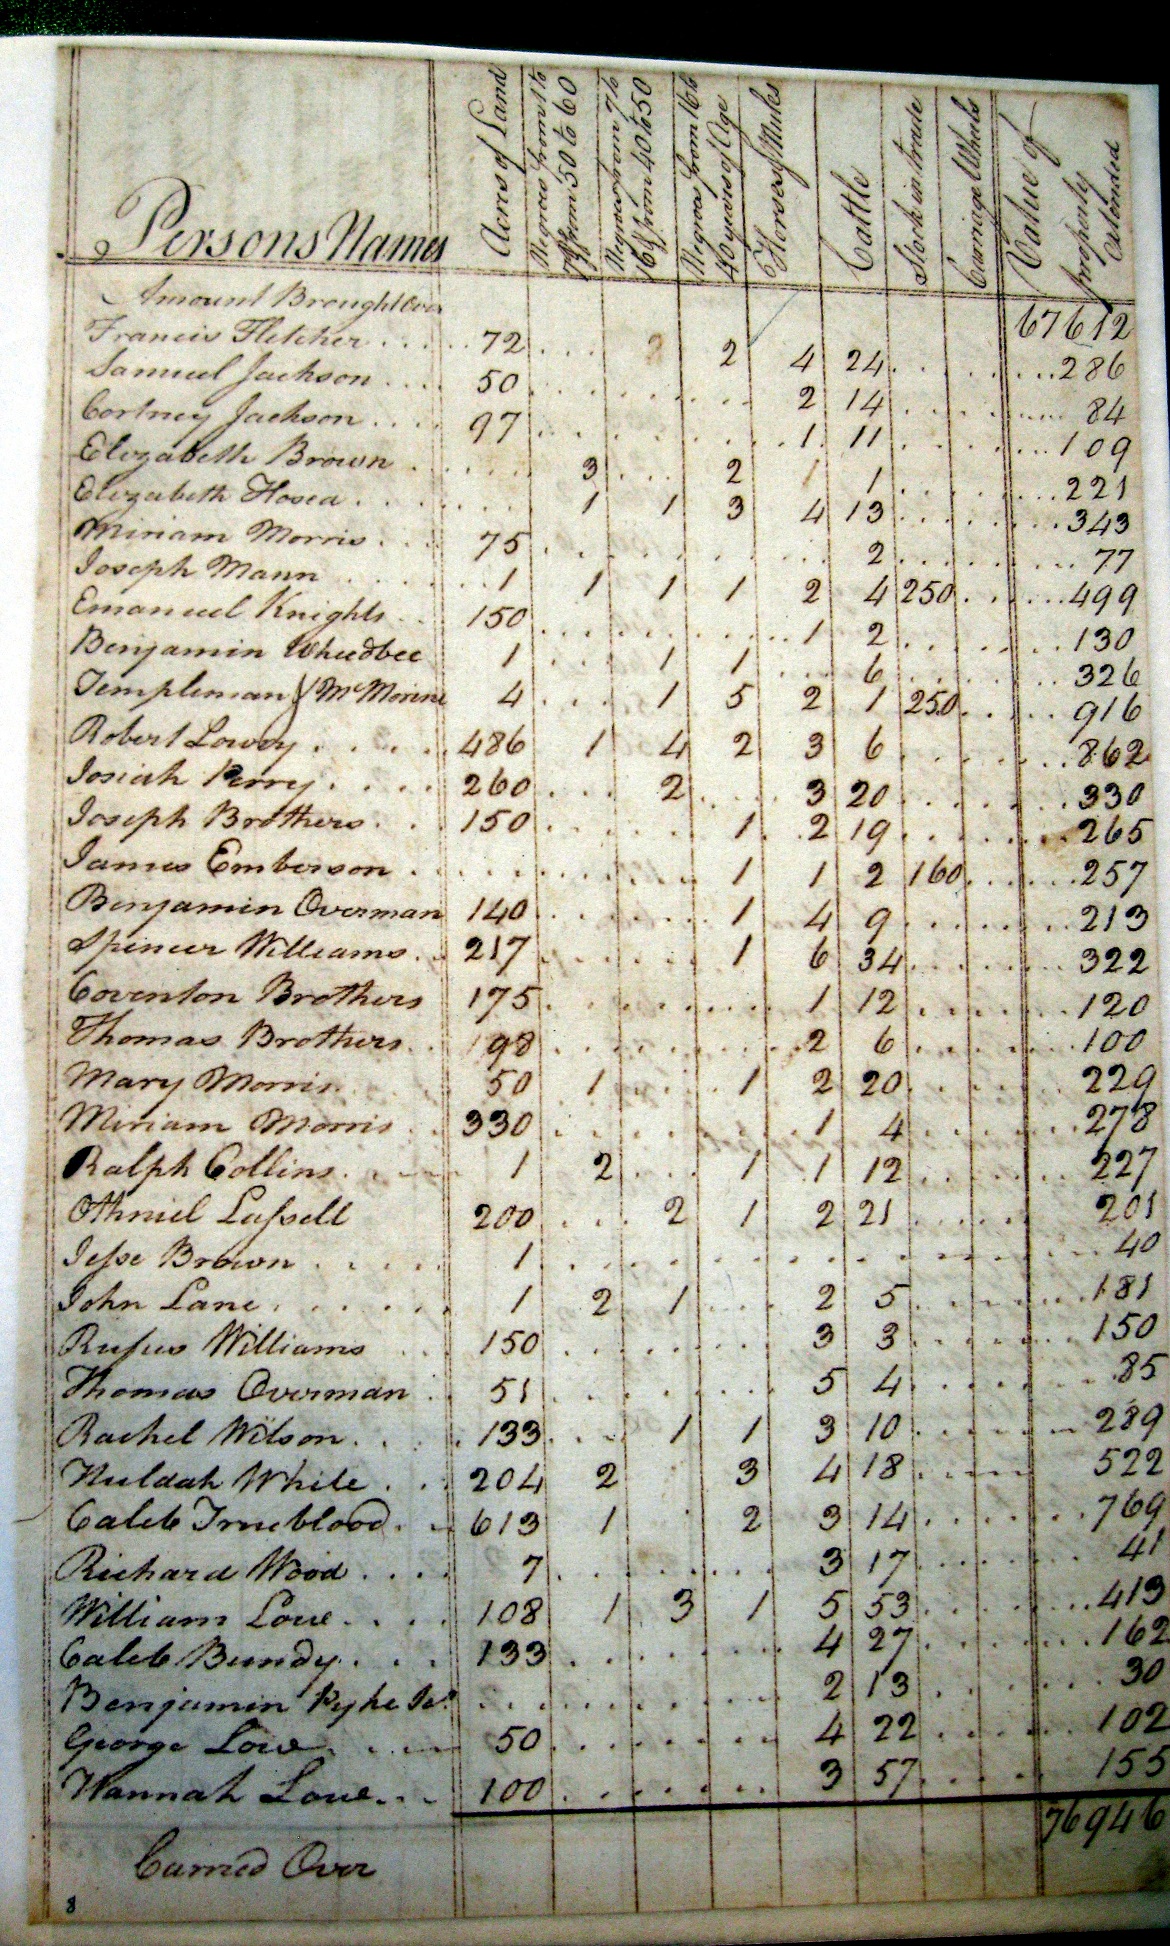 Persons Names Acres of Land Negroes from 1 to 7 & from 50 to 60 Negroes from 7 to 16 & from 40 to 50 Negroes from 16 to 40 years of Age Horses & Mules Cattle Stock in trade Carriage Wheels Value of property extended
Amount Brought Over 67612
Francis Fletcher 72 2 4 24 286
Samuel Jackson 50 2 14 84
Cortney Jackson 97 1 11 109
Elizabeth Brown 3 2 1 1 221
Elizabeth Hosea 1 1 3 4 13 343
Miriam Morris 75 2 77
Joseph Mann 1 1 1 1 2 4 250 499
Emanuel Knights 150 1 2 130
Benjamin Wheedbee 1 1 1 6 326
Templeman } McMorine 4 1 5 2 1 250 916
Robert Lowry 486 1 4 2 3 6 862
Josiah Perry 260 2 3 20 330
Joseph Brothers 150 1 2 19 265
James Emberson 1 1 2 160 257
Benjamin Overman 140 1 4 9 213
Spencer Williams 217 1 6 34 322
Coventon Brothers 175 1 12 120
Thomas Brothers 198 2 6 100
Mary Morris 50 1 1 2 20 229
Miriam Morris 330 1 4 278
Ralph Collins 1 2 1 1 12 227
Othniel Lassell 200 2 1 2 21 201
Jesse Brown 1 40
John Lane 1 2 1 2 5 181
Rufus Williams 150 3 3 150
Thomas Overman 51 5 4 85
Rachel Wilson 133 1 1 3 10 289
Huldah White 204 2 3 4 18 522
Caleb Trueblood 613 1 2 3 14 769
Richard Wood 7 3 17 41
William Lowe 108 1 3 1 5 53 413
Caleb Bundy 133 4 27 162
Benjamin Pyke 2 13 30
George Lowe 50 4 22 102
Hannah Lowe 100 3 57 155
Carried Over 76946
8